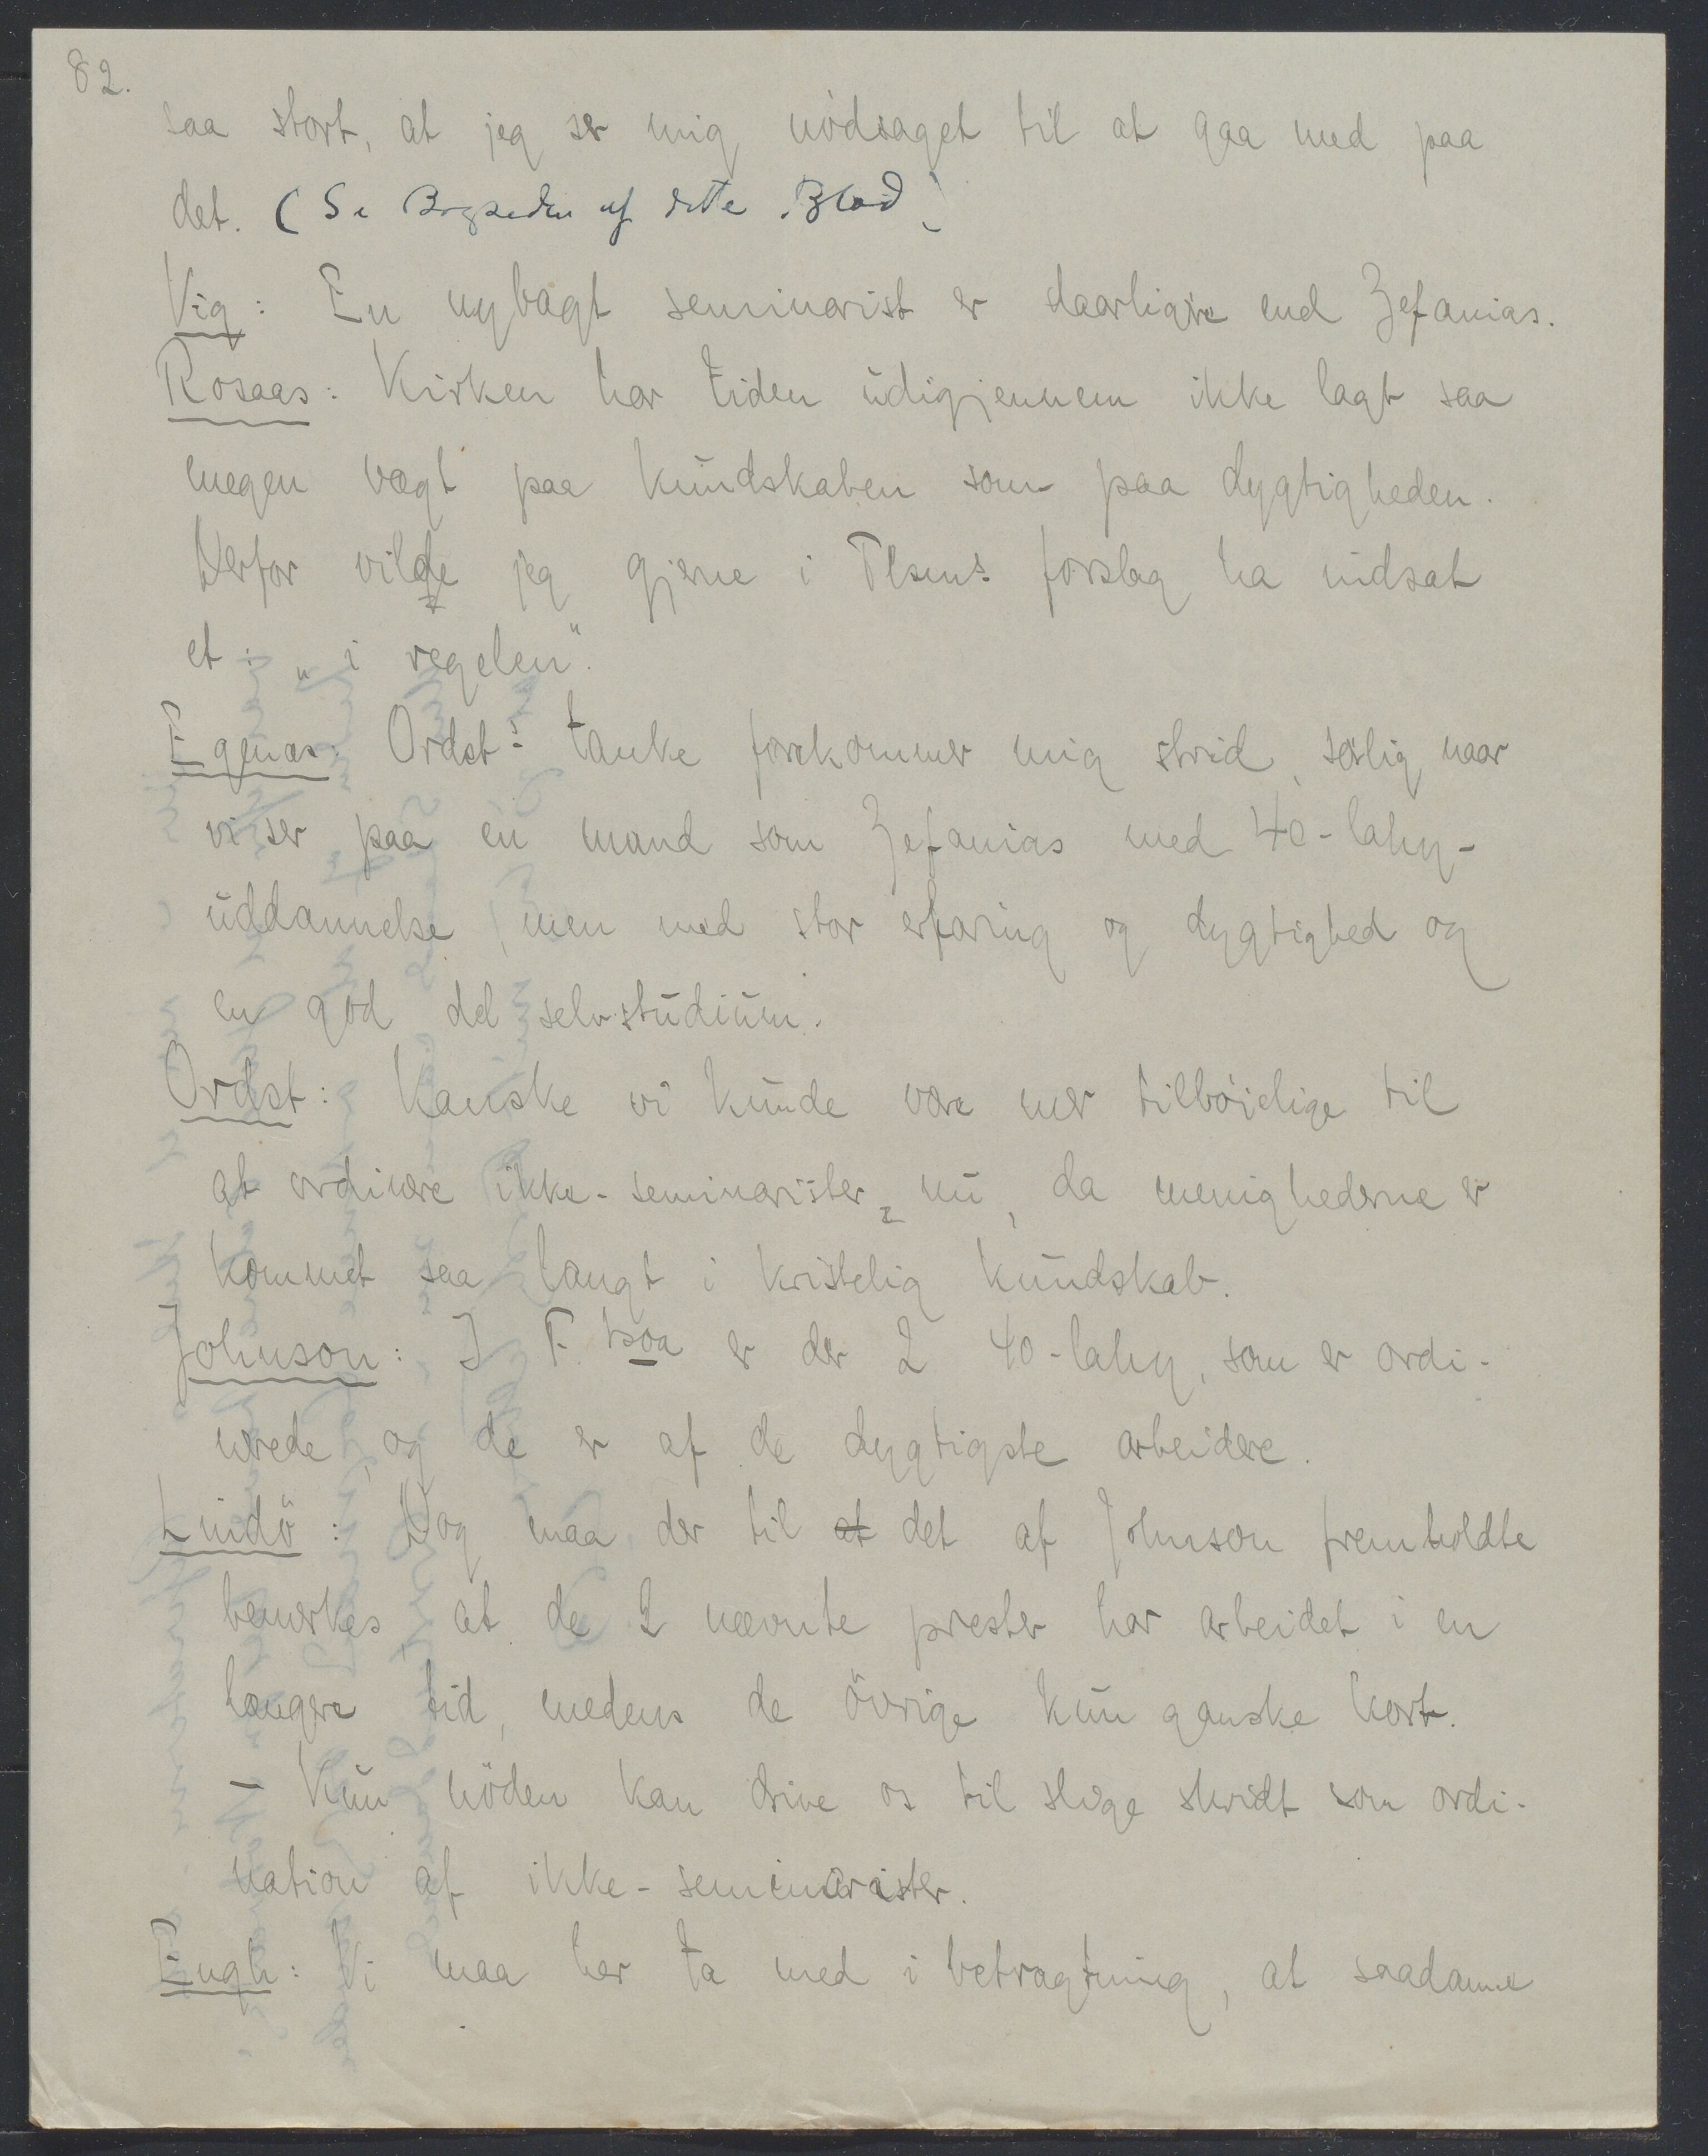 82.
saa stort, at jeg ser mig nödsaget til at gaa med paa
det. (Se Bagsiden af dette Blad)
Vig: En nybagt seminarist er daarligere end Zefanias.
Rosaas: Kirken har tiden udigjennem ikke lagt saa
megen vægt paa kundskaben som paa dygtigheden.
Derfor vilde jeg gjerne i forslag ha indsat
et: „i regelen".
Egenæs: Ordst.s tanke forekommer mig strid, særlig naar
vi ser paa en mand som Zefanias med 40-lahy-
uddannelse, men med stor erfaring og dygtighed og
en god del selvstudium.
Ordst: Kanske vi kunde være mer tilböielige til
at ordinere ikke-seminarister nu, da menighederne er
kommet saa langt i kristelig kundskab.
Johnson: I F. tsoa er der 2 40-lahy, som er ordi-
nerede, og de er af de dygtigste arbeidere.
Lindö: Dog maa der til at det af Johnson fremholdte
bemerkes, at de 2 nævnte prester har arbeidet i en
længere tid, medens de övrige kun ganske kort.
– Kun nöden kan drive os til slige skridt som ordi-
nation af ikke-seminarister.
Engh: Vi maa her ta med i betragtning, at saadanne